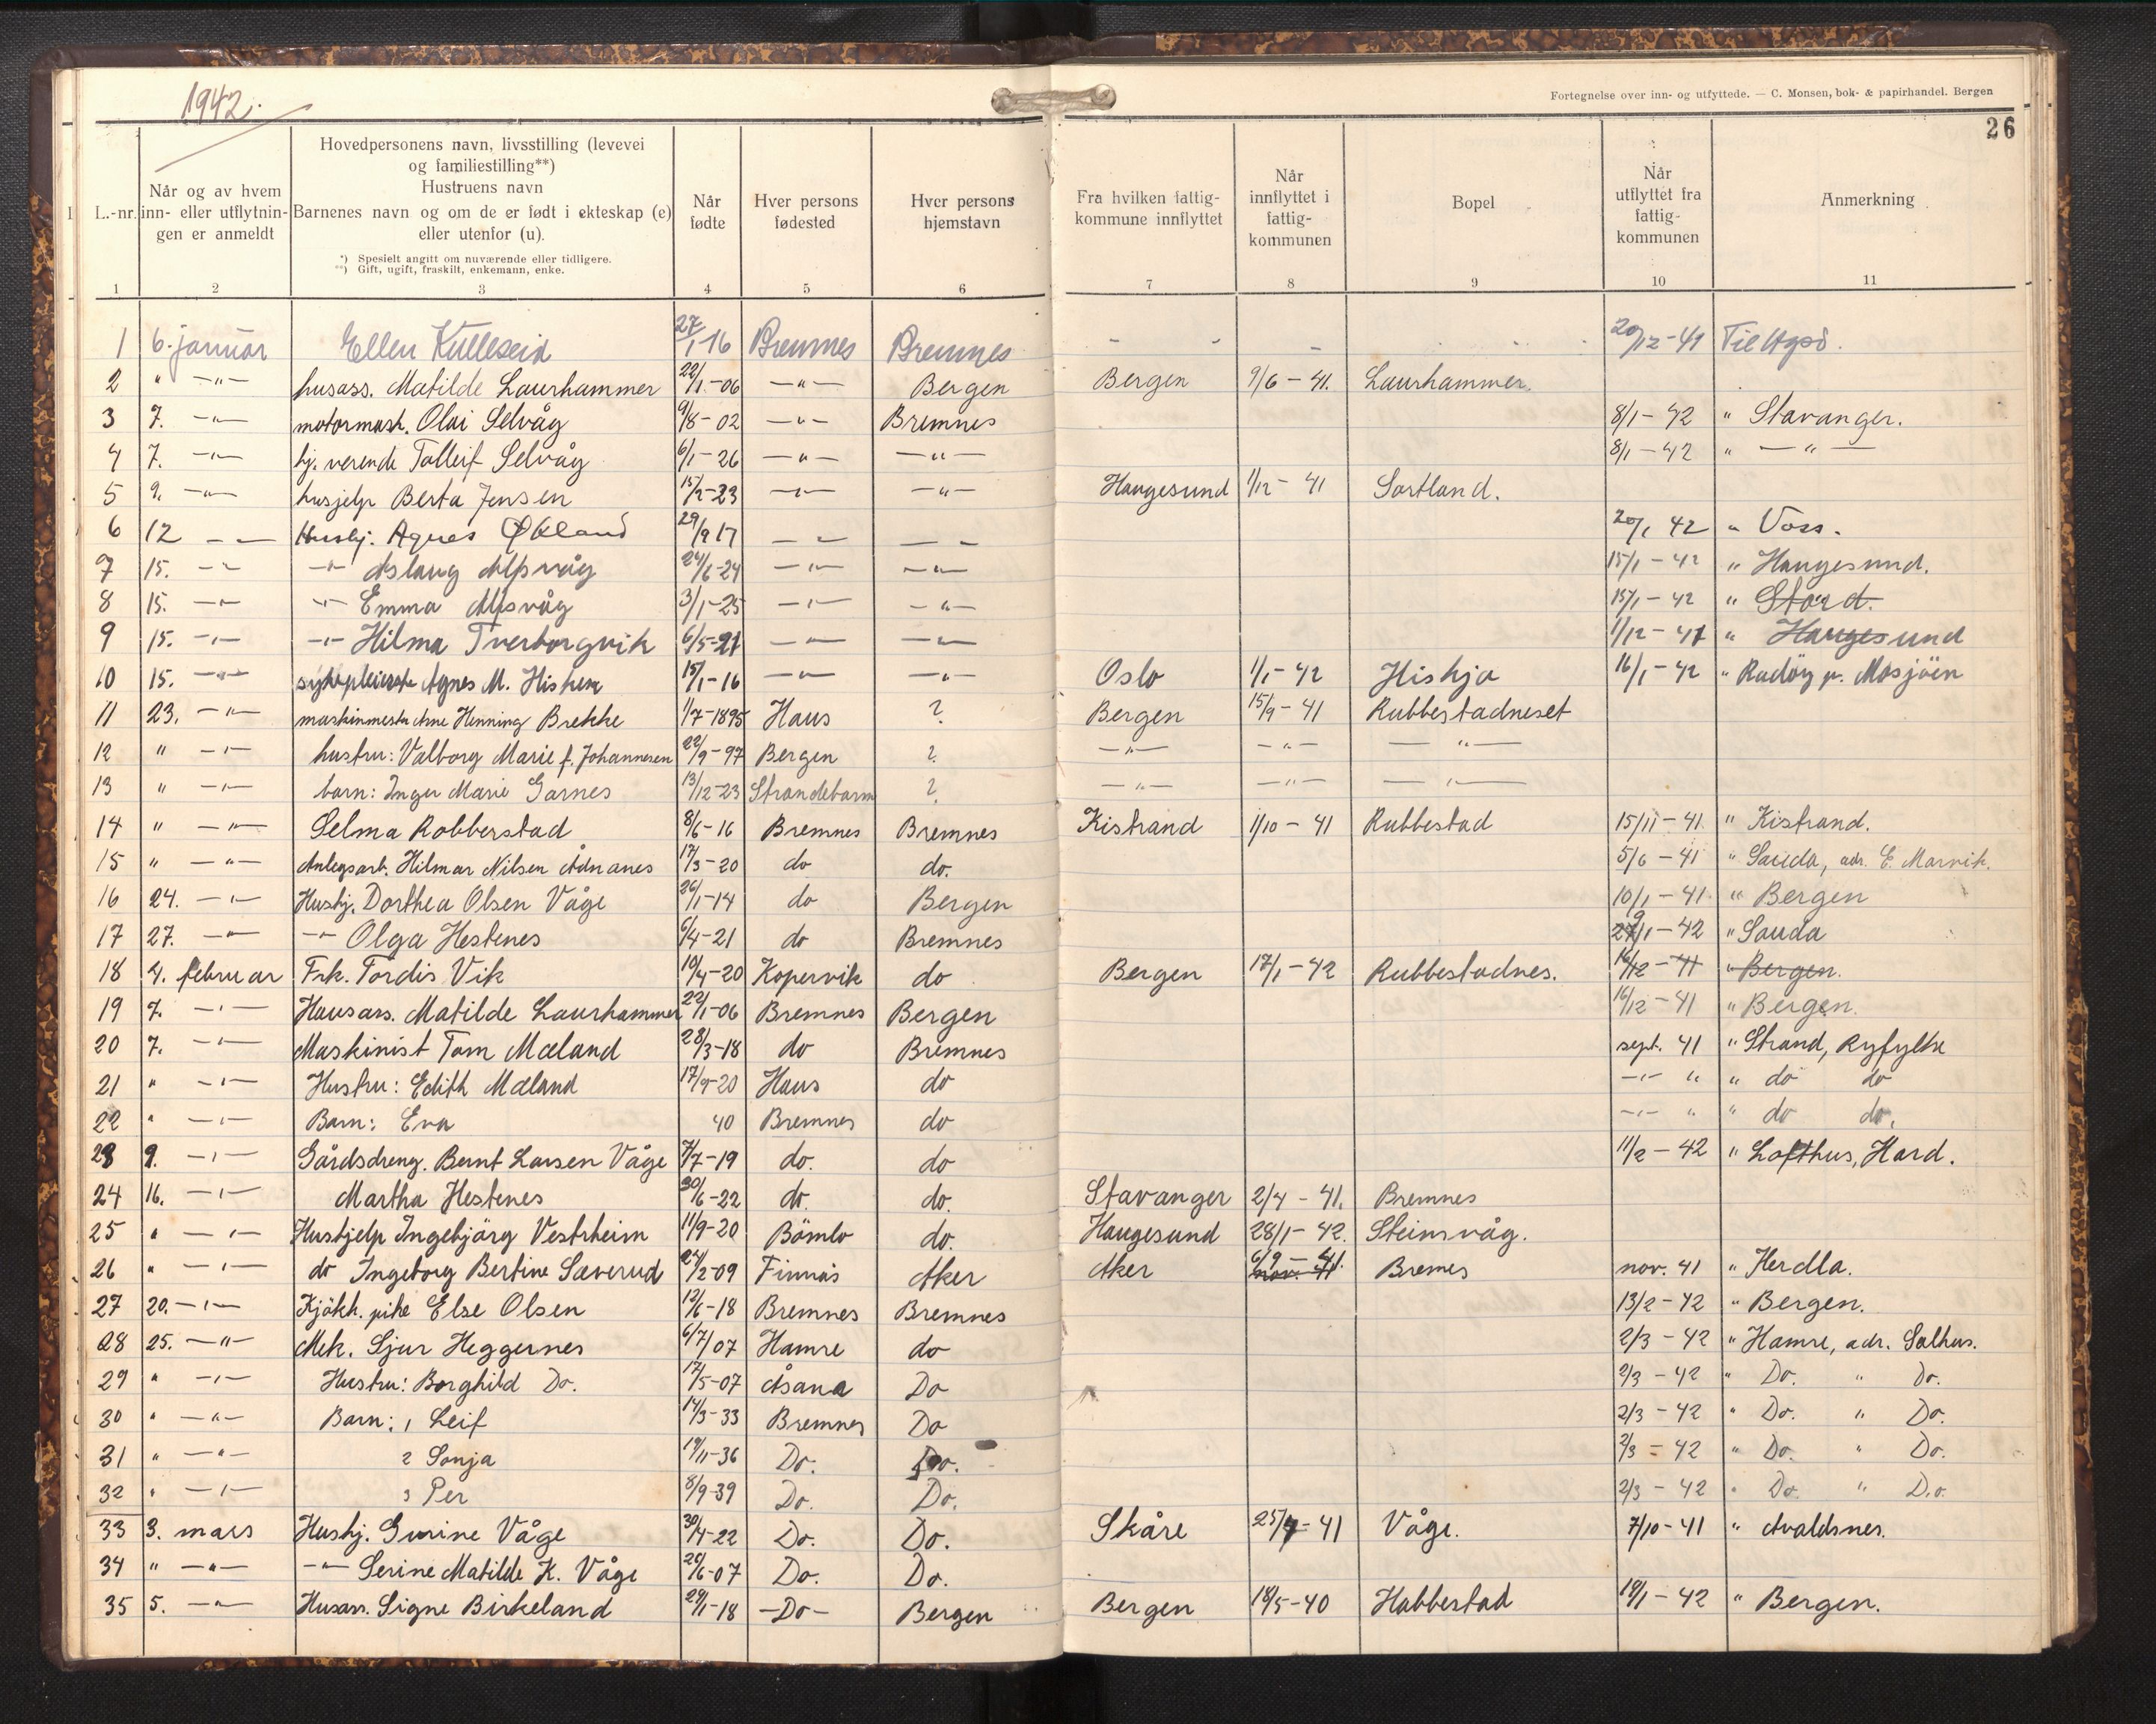 1942.
Fortegnelse over inn- og utflyttede. — C. Monsen, bok- & papirhandel. Bergen
26
L.-nr. | Når og av hvem inn- eller utflytnin- gen er anmeldt | Hovedpersonens navn, livsstilling (levevei og familiestilling**) Hustruens navn Barnenes navn og om de er født i ekteskap (e) eller utenfor (u). *) Spesielt angitt om nuværende eller tidligere. **) Gift, ugift, fraskilt, enkemann, enke. | Når fødte | Hver persons fødested | Hver persons hjemstavn | Fra hvilken fattig- kommune innflyttet | Når innflyttet i fattig- kommunen | Bopel | Når utflyttet fra fattig- kommunen | Anmerkning
1 2 3 4 5 6 7 8 9 10 11
1 6. januar Ellen Kulleseid 27/1 16 Bremnes Bremnes - - - - - 20/12-41 Til
2 " -"- husass. Matilde Laurhammer 22/1-06 -"- Bergen Bergen 9/6-41. Laurhammer.
3 7. -"- motormask. Olai Selvåg 9/8-02 -"- Bremnes 8/1-42 " Stavanger.
4 7. -"- hj. verende Tolleif Selvåg 6/1-26 -"- -"- 8/1-42 " -"-
5 9. -"- husjelp Berta Jensen 15/2-23 -"- -"- Haugesund 1/12-41 Sortland.
6 12 -"- Hushj. Agnes Økland 29/9 17 -"- -"- 20/1 42 " Voss.
7 15. -"- -"- Aslaug Alpsvåg 24/6-24 -"- -"- 15/1-42 " Haugesund.
8 15. -"- -"- Emma Alpsvåg 3/1-25 -"- -"- 15/1-42 " Stord.
9 15. -"- -"- Hilma Tverborgvik 6/5-21 -"- -"- 1/12-41 " Haugesund
10 15. -"- sykepleierske Agnes M. Hisken 15/1-16 -"- -"- Oslo 1/1-42 Hiskja 16/1-42 " Radøy p. Mosjöen
11 23. -"- maskinmester Arne Henning Brekke 1/7-1895 Haus ? Bergen 15/9-41 Rubbestadneset
12 " -"- hustru: Valborg Marie f. Johannesen 22/9-97 Bergen ? -"- -"- -"-
13 " -"- barn: Inger Marie Garnes 13/12-23 Strandebarm ? -"- -"- -"-
14 " -"- Selma Robberstad 8/6-16 Bremnes Bremnes Kistrand 1/10-41 Rubbestad 15/11-41 " Kistrand.
15 " -"- Anlegsarb. Hilmar Nilsen Ådnanes 17/3-20 do do. 5/6-41 " Sauda, adr. E. Marvik.
16 24. -"- Hushj. Dorthea Olsen Våge 26/1-14 do Bergen 10/1-41 " Bergen
17 27. -"- -"- Olga Hestenes 6/4-21 do Bremnes 29/1-42 " Sauda
18 4. februar Frk. Tordis Vik 10/4-20 Kopervik do Bergen 17/1-42 Rubbestadnes. 16/12-41 " Bergen.
19 7. -"- Hausass. Matilde Laurhammer 22/1-06 Bremnes Bergen 16/12-41 " Bergen.
20 7. -"- Maskinist Tom Mæland 28/3-18 do Bremnes sept. 41 " Strand, Ryfylke
21 " -"- Hustru: Edith Mæland 17/9-20 Haus do -"- " " do do
22 " -"- Barn: Eva 40 Bremnes do -"- " " do do.
23 9. -"- Gårdsdreng. Bernt Larsen Våge 7/7-19 do. do 11/2-42 " Lofthus, Hard.
24 16. -"- Martha Hestenes 30/6-22 do. do. Stavanger 2/4-41. Bremnes
25 " -"- Hushjelp Ingebjörg Vestrheim 11/9-20 Bömlo do. Haugesund 28/1-42. Steinsvåg.
26 " -"- do Ingeborg Bertine Sæverud 24/2-09 Finnås Aker Aker 6/9-41. nov. 41 Bremes nov. 41 " Herdla.
27 20. -"- Kjökk. pike Else Olsen 12/6-18 Bremnes Bremnes 13/2-42 " Bergen.
28 25. -"- Mek. Sjur Heggernes 6/7/07 Hamre do 2/3-42 " Hamre, adr. Salhus.
29 " -"- Hustru: Borghild Do. 17/5-07 Åsana Do 2/3-42 " Do. " Do.
30 " -"- Barn: 1 Leif 14/3-33 Bremnes Do 2/3-42 " Do. " Do.
31 " -"- 2 Sonja 19/11-36 Do. Do. 2/3-42 " Do. " Do.
32 " -"- 3 Per 8/9-39 Do. Do. 2/3-42 " Do. " Do.
33 3. mars Hushj. Gurine Våge 30/4-22 Do. Do. Skåre 25/4-41 Våge. 7/10-41 " Avaldsnes.
34 " -"- -"- Serine Matilde K. Våge 26/6-07 Do. Do.
35 5. -"- Husass. Signe Birkeland 29/1-18 -Do- Bergen Bergen 18/5-40 Habbestad 19/1-42 " Bergen.